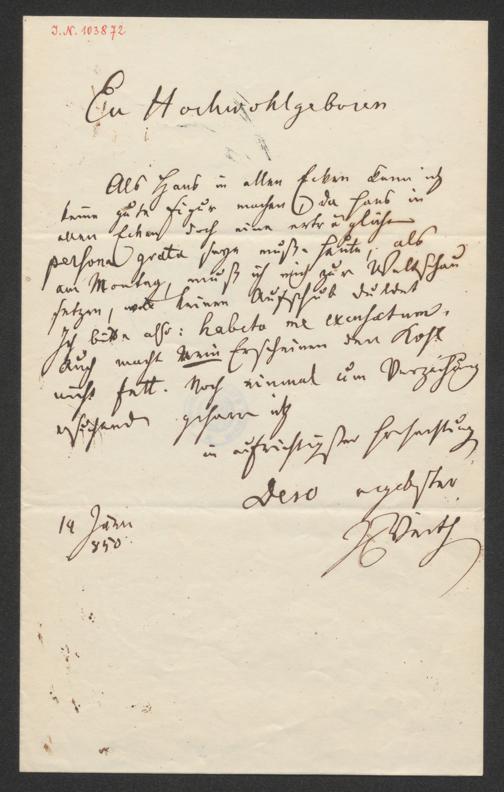 I.N. 103872
Eu Hochwohlgeboren
Als Hans in allen Ecken kann ich
keine gute Figur machen, da Hans in
allen Ecken doch eine erträgliche
persona grata seyn muß. Heute, als
am Montag, muß ich mich zur Weltschau
setzen, was keinen Aufschub duldet
Ich bitte also: habeto me excusatum.
Auch macht Mein Erscheinen den Kohl
nicht fett. Noch einmal um Verzeihung
ersuchend geharre ich
in aufrichtigster Hochachtung
Dero ergebster
Veith
19 Jän
850